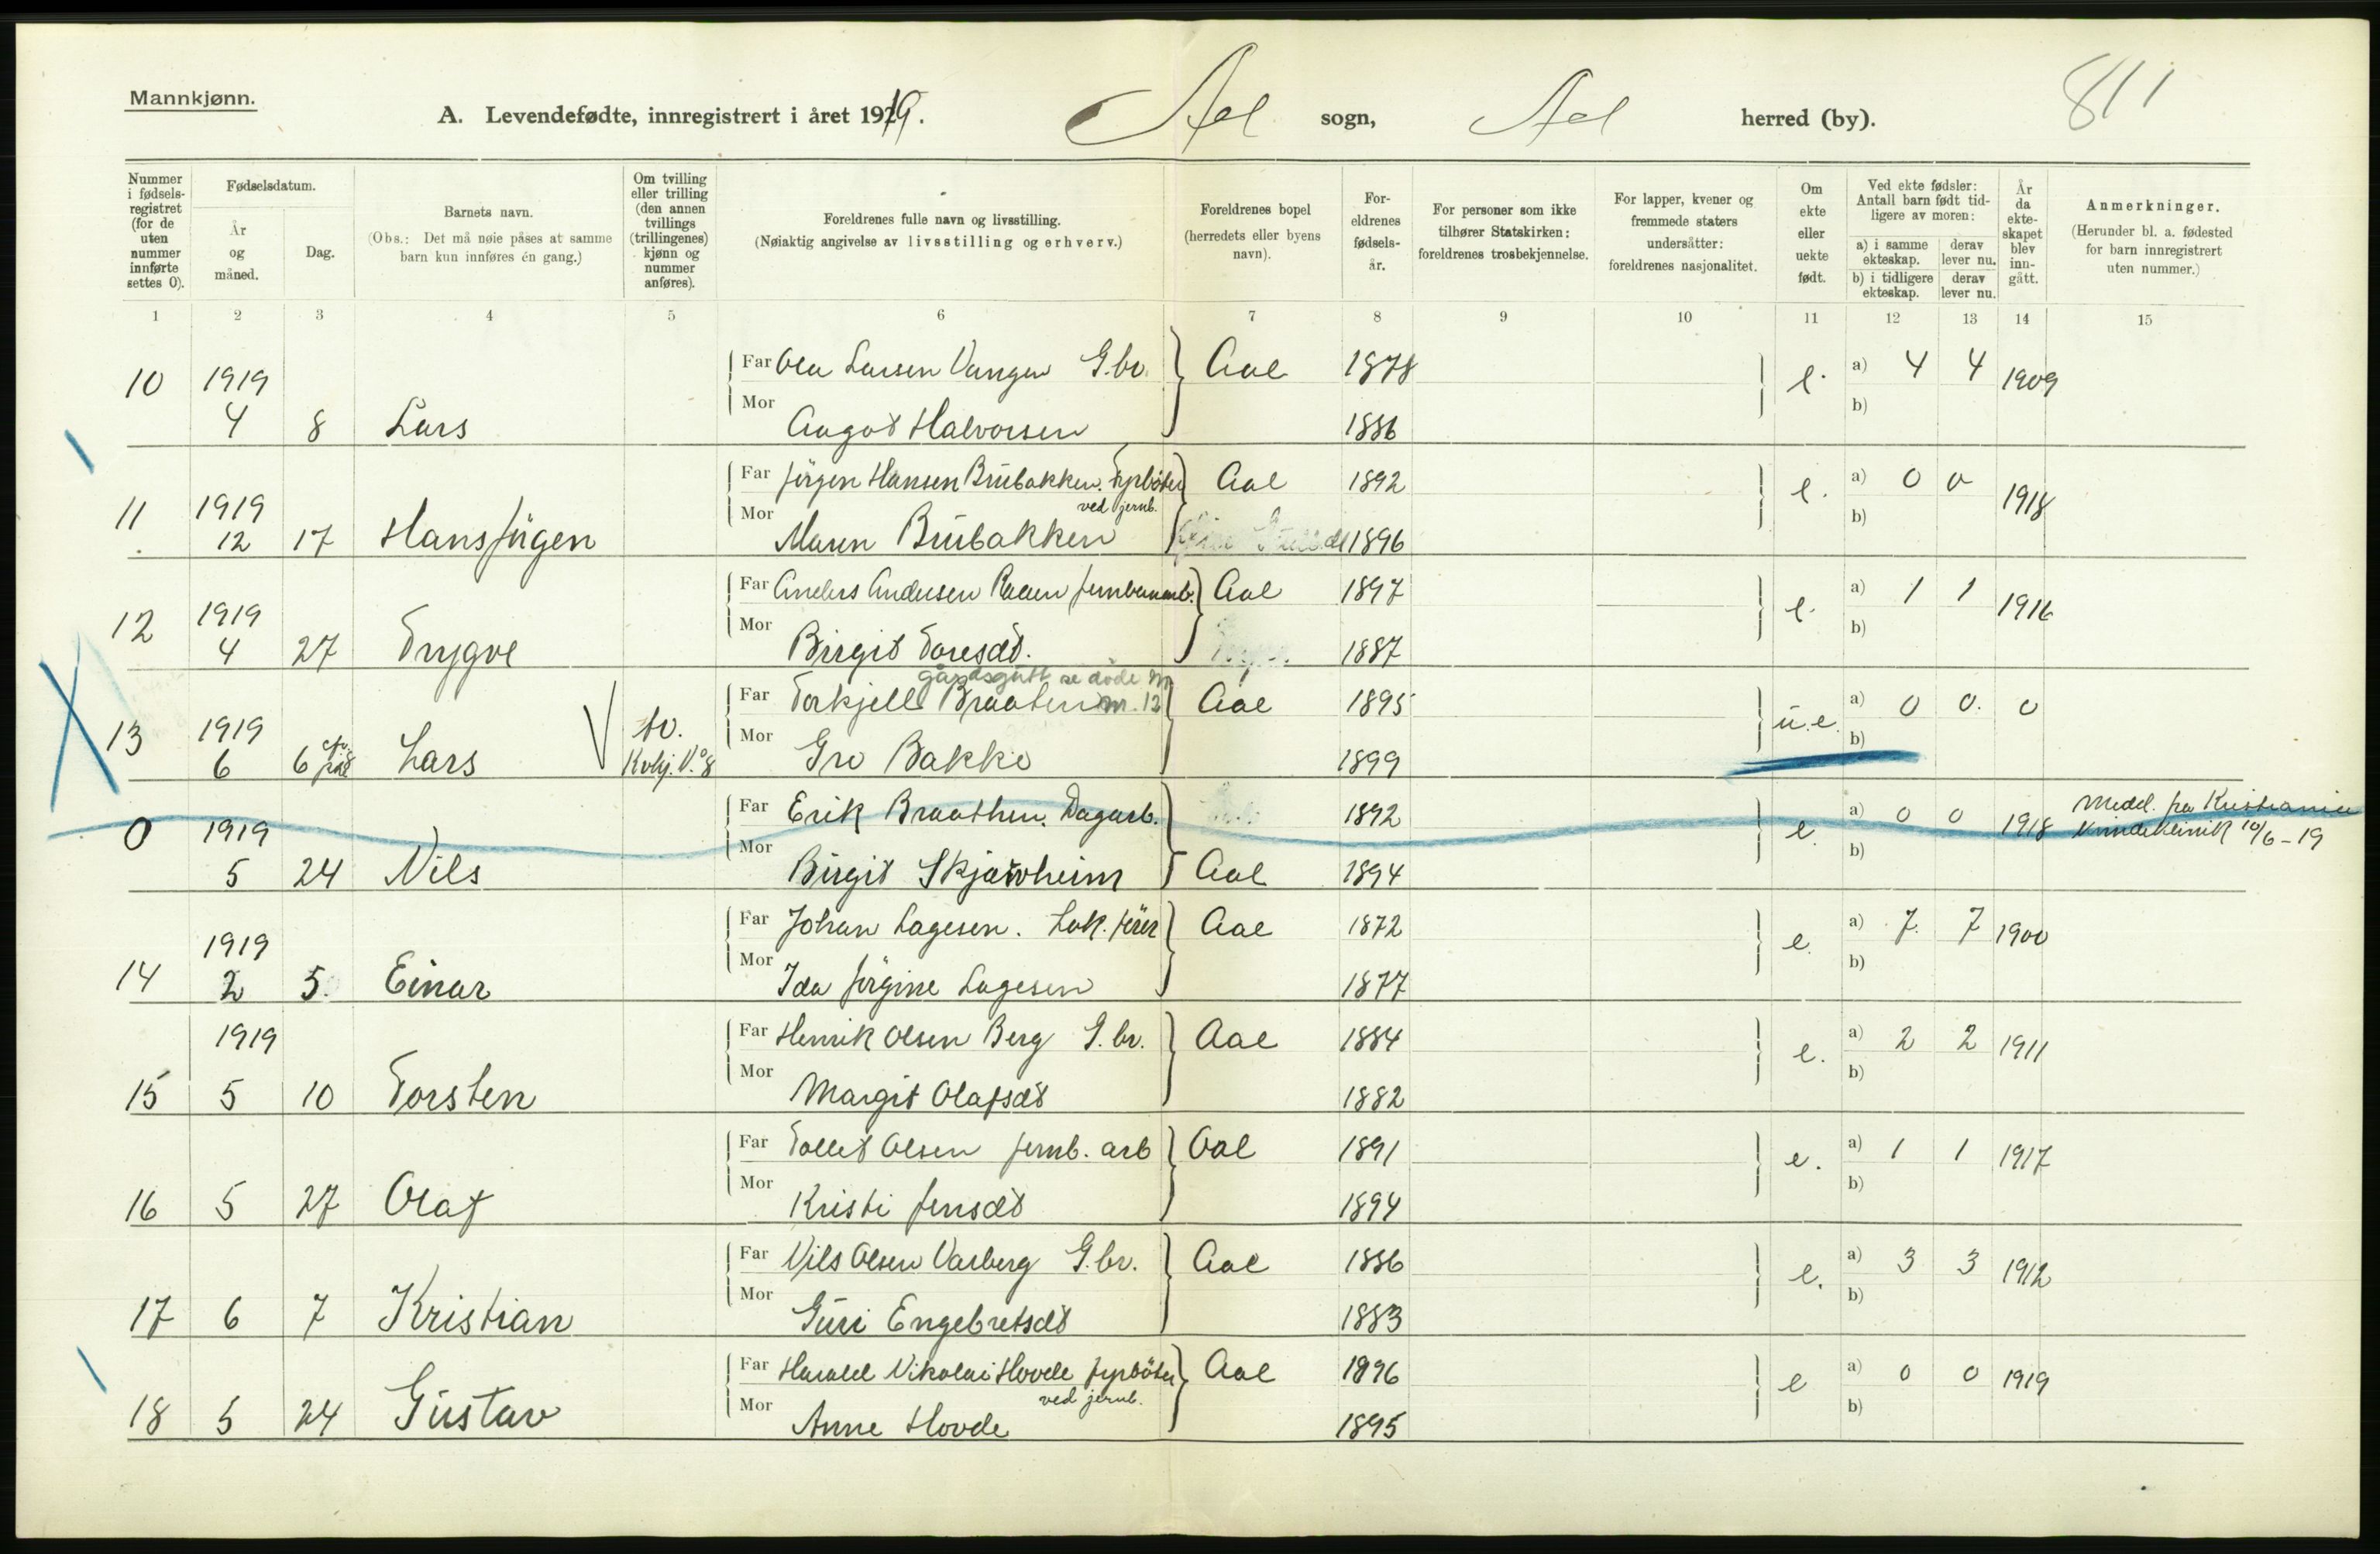 Mannkjønn.
A. Levendefødte, innregistrert i året 1919. Ael sogn, Ael herred (by). 811
Nummer i fødsels-registret (for de uten nummer innførte settes 0).
Fødselsdatum.
År og måned.
Dag.
Barnets navn.
(Obs.: Det må nøie påses at samme barn kun innføres én gang.)
Om tvilling eller trilling (den annen tvillings (trillingenes) kjønn og nummer anføres).
Foreldrenes fulle navn og livsstilling.
(Nøiaktig angivelse av livsstilling og erhverv.)
Foreldrenes bopel (herredets eller byens navn).
For-eldrenes fødsels-år.
For personer som ikke tilhører Statskirken: foreldrenes trosbekjennelse.
For lapper, kvener og fremmede staters undersåtter: foreldrenes nasjonalitet.
Om ekte eller uekte født.
Ved ekte fødsler: Antall barn født tid-ligere av moren:
a) i samme ekteskap. derav lever nu.
b) i tidligere ekteskap. derav lever nu.
År da ekte-skapet blev inn-gått.
Anmerkninger.
(Herunder bl. a. fødested for barn innregistrert uten nummer.)
1 2 3 4 5 6 7 8 9 10 11 12 13 14 15
10 1919 Far Ola Larsen Vangen G.br. Aal 1878 e. a) 4 4 1909
4 8 Lars Mor Angot Halvorsen 1886 b)
11 1919 Far Jörgen Hansen Brubakken. Fyrböter ved jernb. Aal 1892 e. a) 0 0 1918
12 17 Hans Jürgen Mor Maren Brubakken 1896 b)
12 1919 Far Anders Andersen Raaen jernbanearb. Aal 1897 e. a) 1 1 1916
4 27 Trygve Mor Birgit Toresdt. 1887 b)
gårdsgutt se döde M
13 1919 tv. Far Torkjell Braaten m. 12 Aal 1895 u.e. a) 0 0. 0
6 6 Lars Kvkj. No 8 Mor Gro Bakke 1899 b)
0 1919 Far Erik Braathen. Dagarb. 1892 e. a) 0 0 1918 Medd. fra Kristiania
5 24 Nils Mor Birgit Skjarvheim Aal 1894 b) Kvindeklinik 10/6-19
14 1919 Far Johan Lagesen. Lok. förer Aal 1872 e. a) 7. 7 1900
2 5. Einar Mor Ida Jörgine Lagesen 1877 b)
15 1919 Far Henrik Olsen Berg G.br. Aal 1884 e. a) 2 2 1911
5 10 Torsten Mor Margit Olafsdt 1882 b)
16 Far Tollet Olsen jernb. arb Aal 1891 e. a) 1 1 1917
5 27 Olaf Mor Kristi Jensdt 1894 b)
17 Far Nils Olsen Varberg G.br. Aal 1886 e. a) 3 3 1912
6 7 Kristian Mor Guri Engebretsdt 1883 b)
18 Far Harald Nikolai Hovde fyrböter ved jernb. Aal 1896 e a) 0 0 1919
5 24 Gustav Mor Anne Hovde 1895 b)